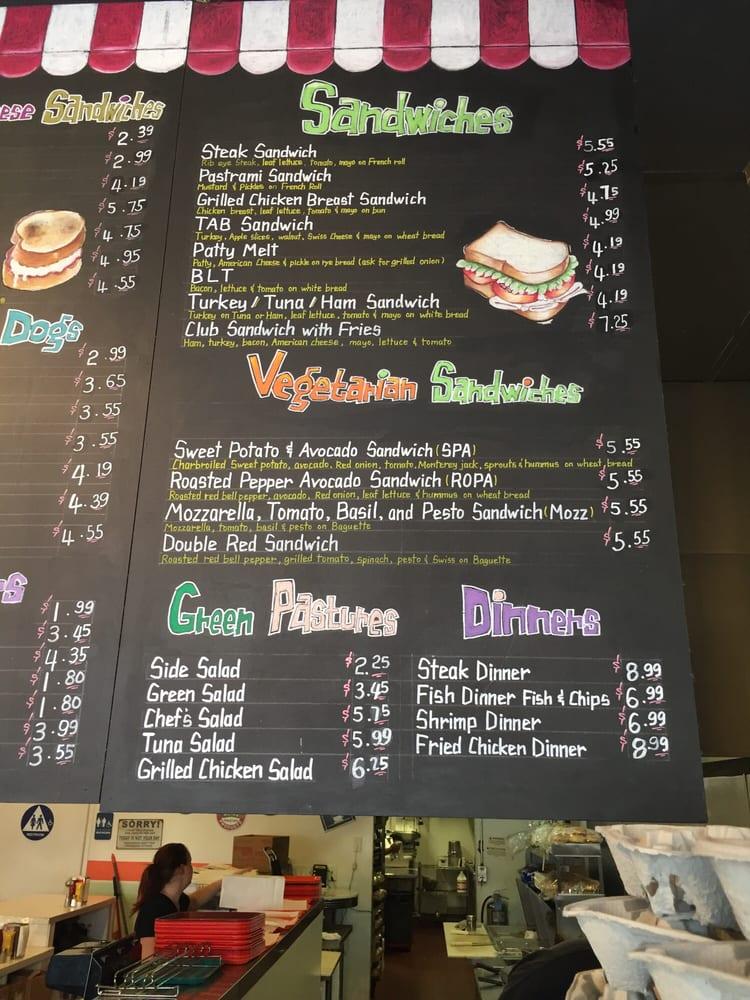 ese Sandwiches
$2.39
$2.99
$4.19
$5.75
$4.75
$4.95
$4.55
Dogs
$2.99
$3.65
$3.55
$3.55
$4.19
$4.39
$4.55
s
$1.99
$3.45
$4.35
$1.80
$1.80
$3.99
$3.55
Sandwiches
Steak Sandwich $5.55
Rib eye Steak, leaf lettuce, tomato, mayo on French roll
Pastrami Sandwich $5.25
Mustard & Pickles on French Roll
Grilled Chicken Breast Sandwich $4.75
Chicken breast, leaf lettuce, Tomato & mayo on bun
TAB Sandwich $4.99
Turkey, Apple slices, walnut, Swiss Cheese & mayo on wheat bread
Patty Melt $4.19
Patty, American Cheese & pickle on rye bread (ask for grilled onion)
BLT $4.19
Bacon, lettuce & tomato on white bread
Turkey / Tuna / Ham Sandwich $4.19
Turkey on Tuna or Ham, leaf lettuce, tomato & mayo on white bread
Club Sandwich with Fries $7.25
Ham, turkey, bacon, American cheese, mayo, lettuce & tomato
Vegetarian Sandwiches
Sweet Potato & Avocado Sandwich (SPA) $5.55
Charbroiled Sweet potato, avocado, Red onion, tomato, Monterey jack, sprouts & hummus on wheat bread
Roasted Pepper Avocado Sandwich (ROPA) $5.55
Roasted red bell pepper, avocado, Red onion, leaf lettuce & hummus on wheat bread
Mozzarella, Tomato, Basil, and Pesto Sandwich (Mozz) $5.55
Mozzarella, tomato, basil & pesto on Baguette
Double Red Sandwich $5.55
Roasted red bell pepper, grilled tomato, spinach, pesto & Swiss on Baguette
Green Pastures
Side Salad $2.25
Green Salad $3.45
Chef's Salad $5.75
Tuna Salad $5.99
Grilled Chicken Salad $6.25
Dinners
Steak Dinner $8.99
Fish Dinner Fish & Chips $6.99
Shrimp Dinner $6.99
Fried Chicken Dinner $8.99
SORRY!